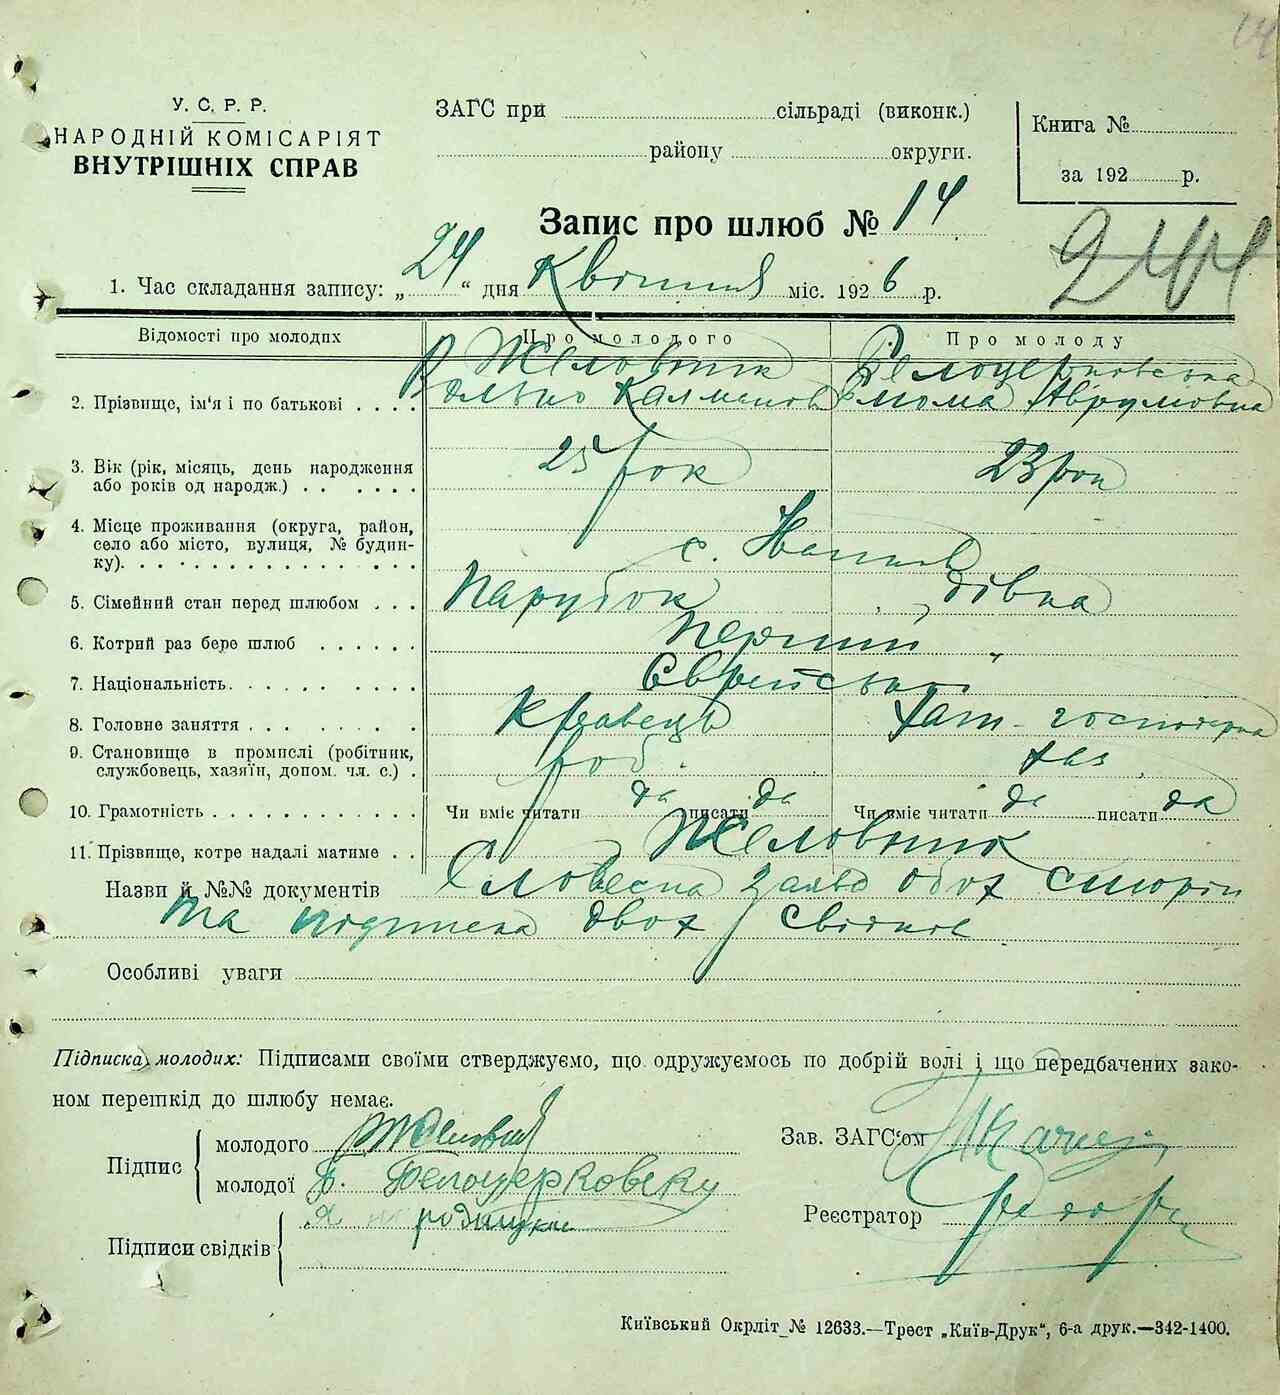 У. С. Р. Р.
НАРОДНІЙ КОМІСАРІЯТ
ВНУТРІШНІХ СПРАВ
ЗАГС при сільраді (виконк.)
району округи.
Книга №
за 192 р.
Запис про шлюб № 14
244
1. Час складання запису: „24“ дня Квітня міс. 1926 р.
Відомості про молодих Про молодого Про молоду
Желовник Белоцерковська
2. Прізвище, ім'я і по батькові Волько Калманов Аврумовна
3. Вік (рік, місяць, день народження
або років од народж.) 25 рок 23 рок
4. Місце проживання (округа, район,
село або місто, вулиця, № будин-
ку). с.
5. Сімейний стан перед шлюбом Парубок дівка
6. Котрий раз бере шлюб перший „
7. Національність Єврейська
8. Головне заняття Кравець хатн-господарка
9. Становище в промислі (робітник,
службовець, хазяїн, допом. чл. с.) роб. хаз.
10. Грамотність Чи вміє читати да писати да Чи вміє читати да писати да
11. Прізвище, котре надалі матиме Желовник
Назви й №№ документів Словесна заява обох сторін
та підписка двох свідків
Особливі уваги
Підписка молодих: Підписами своїми стверджуємо, що одружуємось по добрій волі і що передбачених зако-
ном перешкід до шлюбу немає.
Підпис молодого Желовник
молодої Б. Белоцерковску
Підписи свідків
Зав. ЗАГС'ом
Реєстратор
Київський Окрліт № 12633.—Трест „Київ-Друк“, 6-а друк.—342-1400.